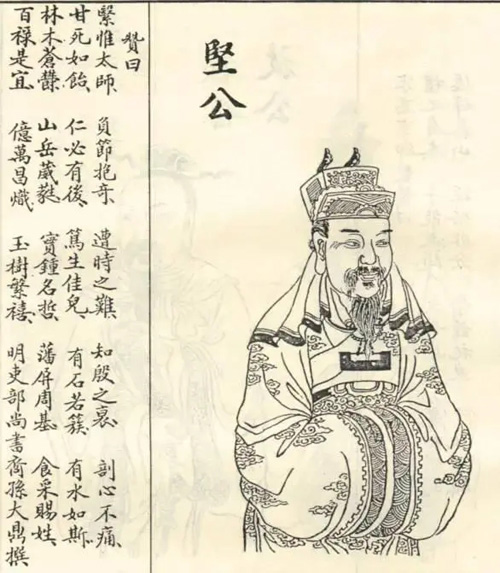 堅公
贊曰
繄惟太師、負節抱奇、遭時之難、知殷之衰、剖心不痛、
甘死如飴、仁必有後、篤生佳兒、有石若簇、有水如斯、
林木蒼欝、山岳葳蕤、實鍾名哲、藩屏周基、食采賜姓、
百祿是宜、億萬昌熾、玉樹繁禧、明吏部尚書裔孫大鼎撰